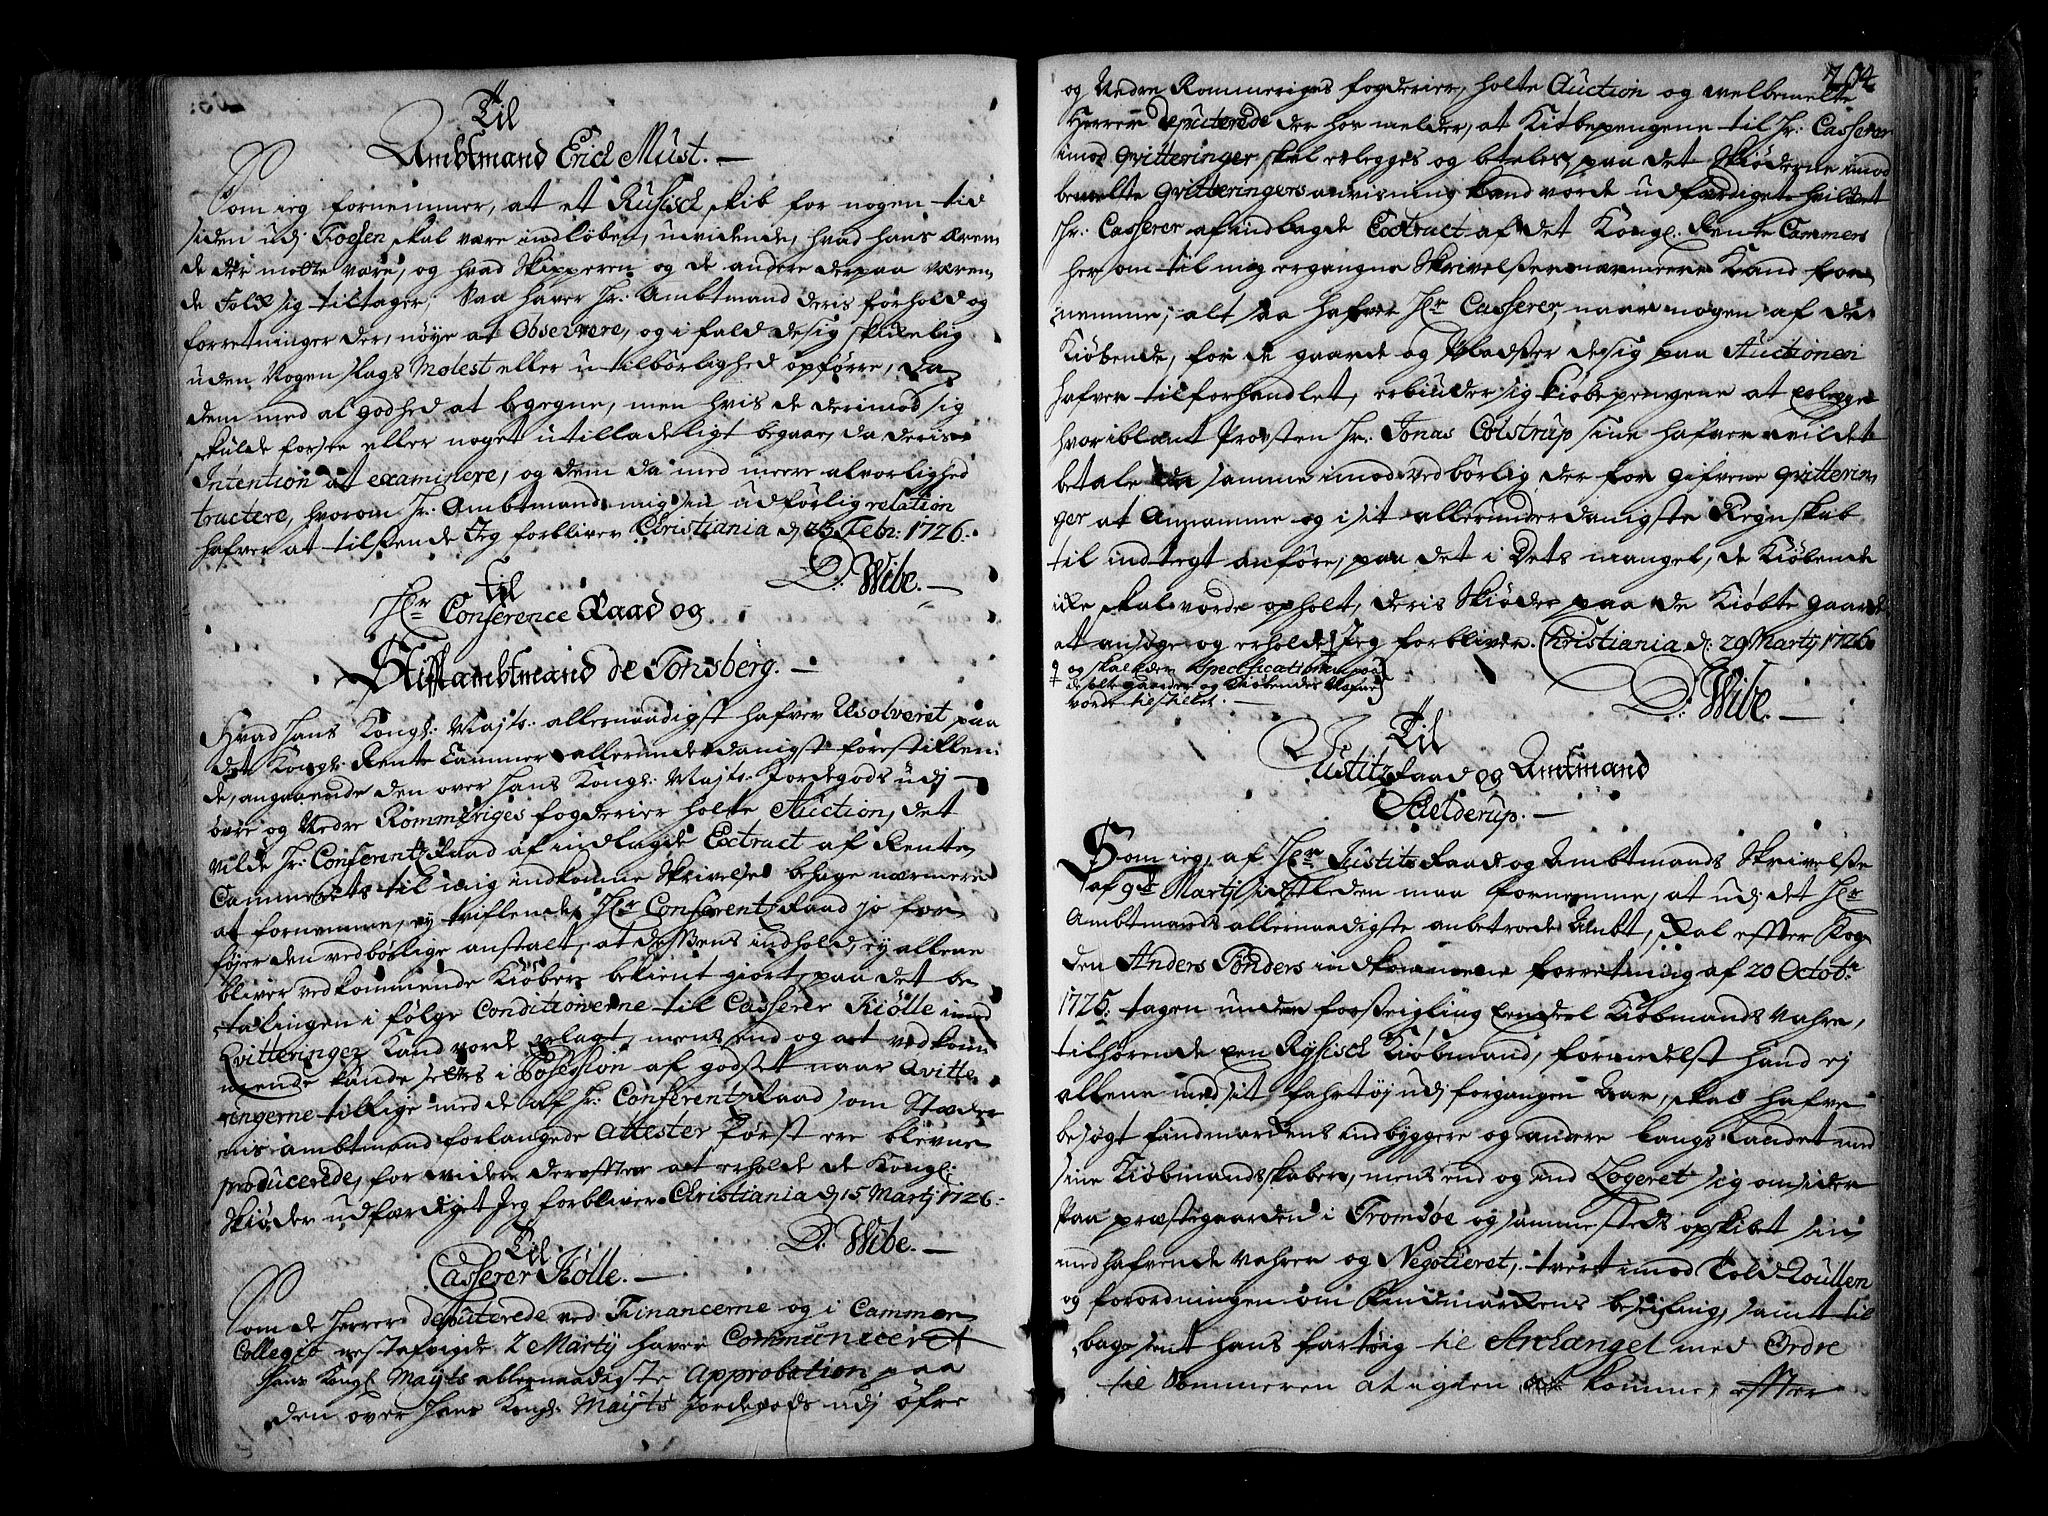 Til
Ambtmand Erich Must. —
Som ieg fornemmer, at et Rusisch skib for nogen tid
siden udj Foesen skal være indløben, uvidende, hvad hans æren,
de der motte være, og hvad Skipperen og de andere derpaa væren,
de Folk sig tiltager; Saa haver Hr: Ambtmand deris forhold og
forretninger der, nøye at Observere, og i fald de sig skikelig
uden Nogen slags Molest eller utilbørlighed opførre, da
dem med al godhed at begegne, men hvis de derimod sig
skulde forsee eller noget utilladeligt begaae, da deris
Intention at examinere, og dem da med meere alvorlighed
tractere, hvorom Hr: Ambtmand mig sin udførlig relation
hafver at tilsende Jeg forbliver Christiania d: Febr: 1726.
D: Wibe. —
Til
Hr Conference Raad og
Stiftambtmand de Tonsberg. —
Hvad Hans Kongl: Mayts: allernaadigst hafver Resolveret paa
det Kongl: Rente Cammer allerunderdanigst forestillen,
de, angaaende den over Hans Kongl: Mayts: Jordegods udj
øvre og Nedre Rommeriges fogderier holte Auction, det
vilde Hr: Conferentz Raad af indlagde Extract af Rente
Cammerets til mig indkomne Skrivelse behage nærmere
at fornemme, ey tviflende, Hr Conferentz Raad jo for
føyer den vedbørlige anstalt, at dessens indhold ey allene
bliver vedkommende Kiøbere bekient giort, paa det be,
talingen i følge Conditionerne til Casserer Kiølle imod
Qvitteringer kand vorde erlagt, mens end og at vedkom
mende kunde settes i Possession af godset naar Qvitte
ringerne tillige med de af Hr: Conferentz Raad som
ambtmand forlangede Attester først ere blevne
producerede, for videre derefter at erholde de Kongl:
Skiøder udfærdiget Jeg forbliver Christiania d: 15 Martj 1726.
D: Wibe. —
Til
Casserer Kiølle. —
Som de Herrer deputerede ved Financerne og i Cammer
Collegio nestafvigde 2 Martij haver Communiceret
Hans Kongl Mayts allernaadigste Approbation paa
den over Hans Kongl: Mayts Jordegods udj øfre
og Nedre Rommeriges fogderier, holte Auction og velbemelte
Herrer Deputerede derhos melder, at Kiøbepengene til Hr: Casserer
imod qvitteringer skal erlegges og betales, paa det Skiøderne imod
bemelte qvitteringers anvisning kand vorde udfærdiget hvilket
Hr: Casserer af indlagde Extract af det Kongl: Rente Cammers
her om til mig ergangne Skrivelse nærmere kand for
nemme; alt saa hafver Hr Casserer, naar nogen af de
Kiøbende, for de gaarde og Pladser de sig paa Auctionen
hafver tilforhandlet, erbiuder sig kiøbepengene at erlegge
hvoriblant Provsten Hr: Jonas Colstrup sine hafver vildet
betale samme imod vedbørlig der for gifvene qvitterin,
ger at Annamme og i sit allerunderdanigste Regnskab
til indtegt anføre, paa det i Dets mangel, de Kiøbende
ikke skal vorde opholt, deris Skiøder paa de Kiøbte gaarde
at ansøge og erholde Jeg forbliver. Christiania d: 29 Martij 1726.
og skal Specification paa
de solte gaarder og Kiøbendes Nafne
vorde tilstillet. —
D: Wibe. —
Til
Justitz Raad og Amtmand
Schelderup. —
Som ieg, af Hr Justits Raad og Ambtmands Skrivelse
af 9de Martj sidstleden maa fornemme, at udj det Hr
Ambtmands allernaadigste anbetroede Ambt, skal efter Fog
den Anders Tønders indkommene forretning af 20 Octobr
1725 tagen under forseigling een deel Kiøbmands Vahre,
tilhørende een Rysisch Kiøbmand, formedelst hand ej
allene med sit fahrtøj udj forgangen Aar, skal hafve
besøgt Findmarckens indbyggere og andere langs Landet med
sine Kiøbmandskaber, mens end og ind Logeret sig omsider
paa præstegaarden i Tromsøe og sammesteds opskibet sin
medhafvende vahrer og Negotieret, tvert imod Told Roullen
og forordningen om Findmarkens beseiling, samt til
bage sent hans fartøig til Archangel med Ordre
til Sommeren at igien komme, efter